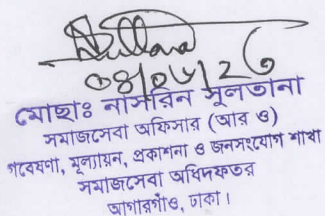 Sultana
০৪/০৬/২৫
মোছাঃ নাসরিন সুলতানা
সমাজসেবা অফিসার (আর ও)
গবেষণা, মূল্যায়ন, প্রকাশনা ও জনসংযোগ শাখা
সমাজসেবা অধিদফতর
আগারগাঁও, ঢাকা।